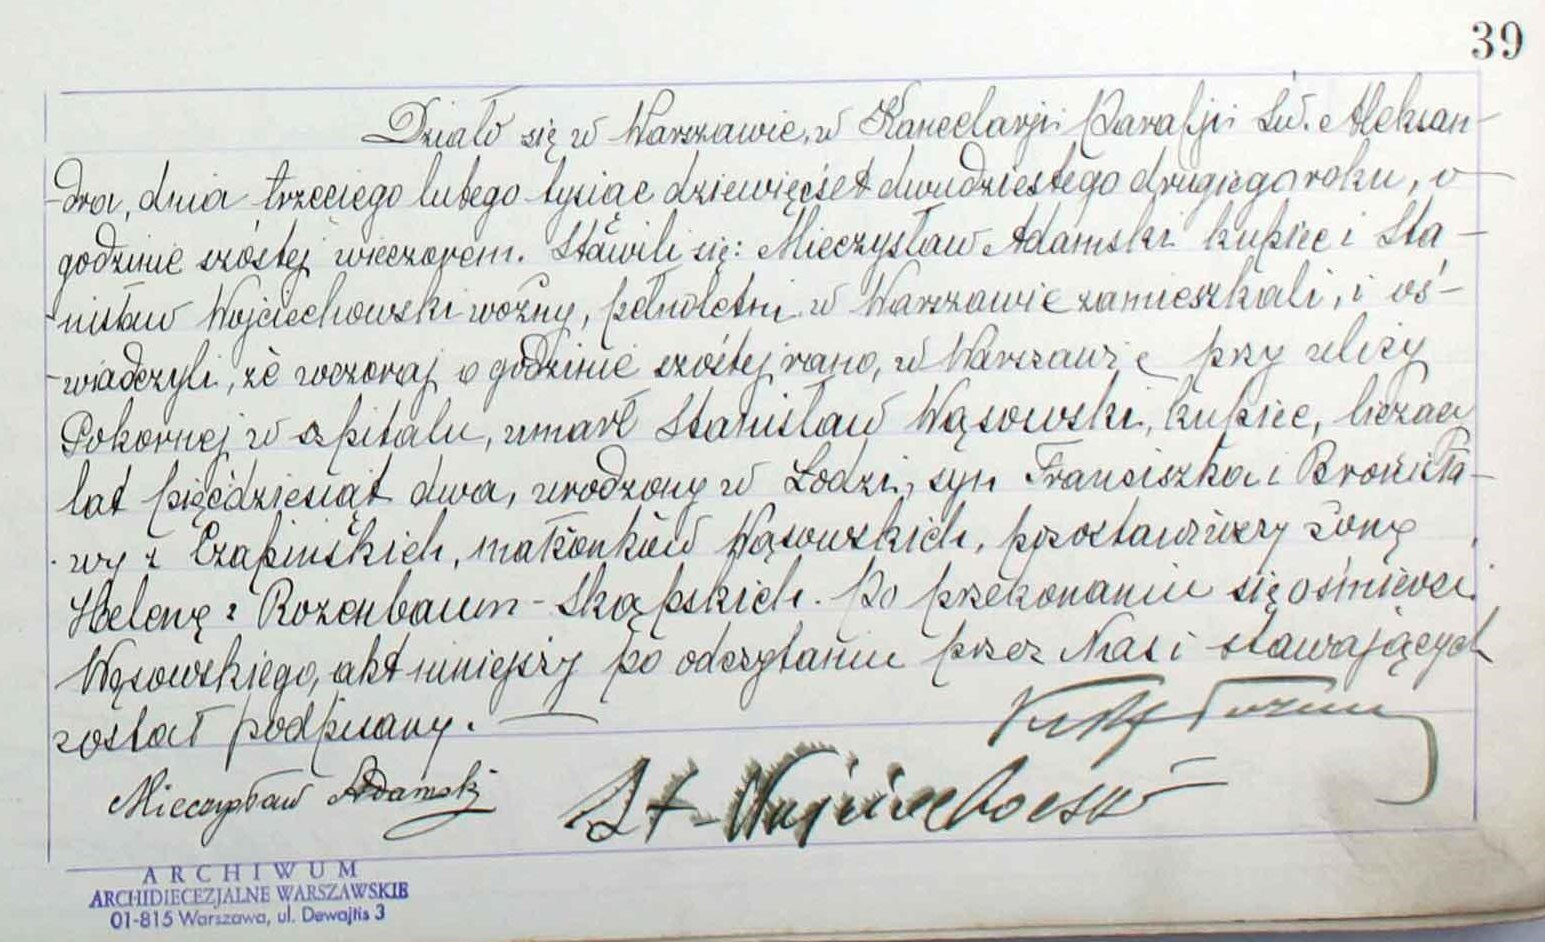 39
Działo się w Warszawie, w Kancelarji Parafji Św. Aleksan-
dra, dnia trzeciego lutego tysiąc dziewięćset dwudziestego drugiego roku, o
godzinie szóstej wieczorem. Stawili się: Mieczysław Adamski kupiec i Sta-
nisław Wojciechowski woźny, pełnoletni w Warszawie zamieszkali, i oś-
wiadczyli, że wczoraj o godzinie szóstej rano, w Warszawie przy ulicy
Pokornej w szpitalu, umarł Stanisław Wąsowski, kupiec, liczący
lat pięćdziesiąt dwa, urodzony w Łodzi, syn Franciszka i Bronisła-
wy z Czapińskich, małżonków Wąsowskich, pozostawiwszy żonę
Helenę z Rozenbaum-Skąpskich. Po przekonaniu się o śmierci
Wąsowskiego, akt niniejszy po odczytaniu przez Nas i stawających
został podpisany.
Mieczysław Adamski St-Wojciechowski
ARCHIWUM
ARCHIDIECEZJALNE WARSZAWSKIE
01-815 Warszawa, ul. Dewajtis 3